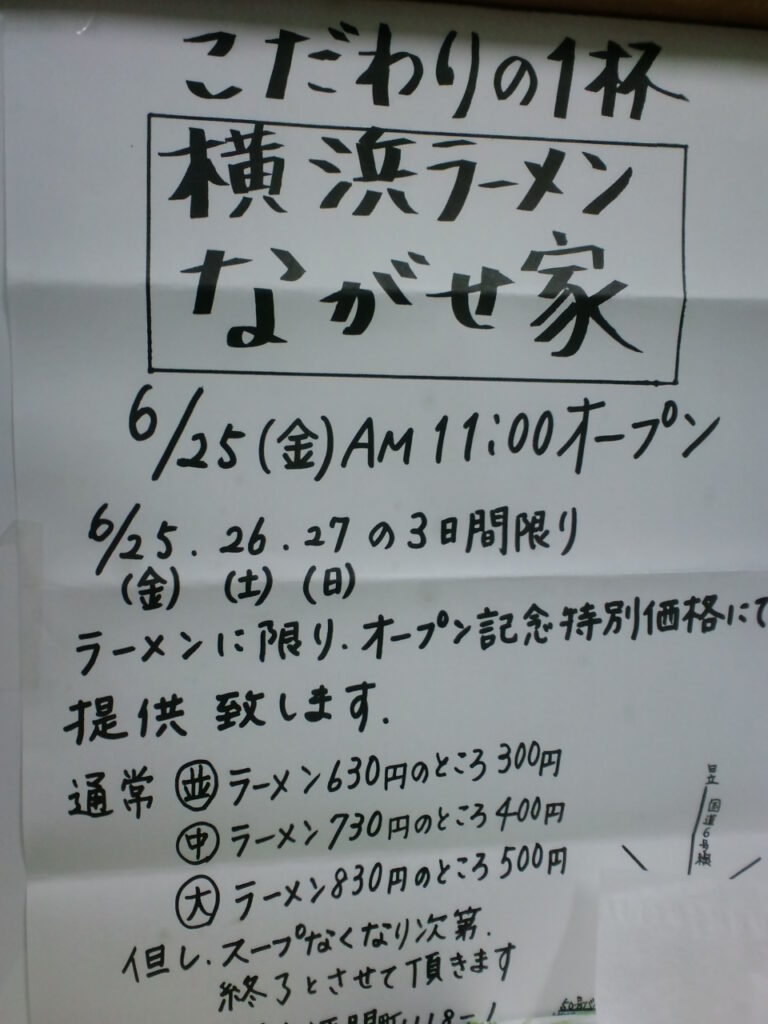 こだわりの1杯
横浜ラーメン
ながせ家
6/25(金)AM11:00オープン
6/25.26.27の3日間限り
(金) (土) (日)
ラーメンに限り.オープン記念特別価格にて
提供致します.
通常 ㊉並 ラーメン630円のところ300円
㊥ ラーメン730円のところ400円
大 ラーメン830円のところ500円
但し.スープなくなり次第.
終了とさせて頂きます
日立 国道6号線